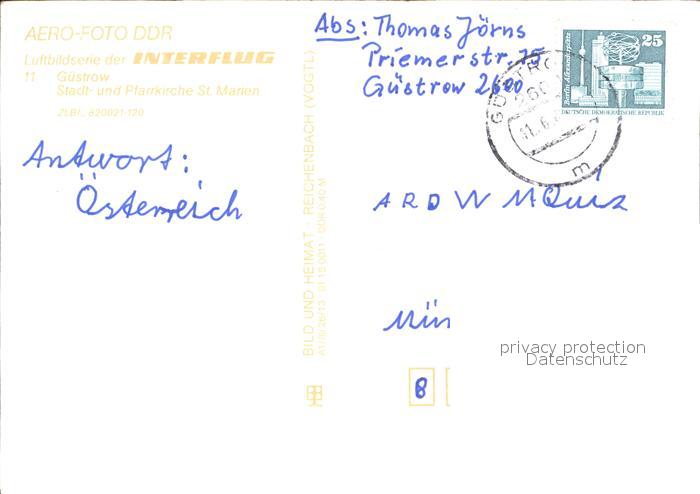 AERO-FOTO DDR
Luftbildserie der INTERFLUG
11 Güstrow
Stadt- und Pfarrkirche St. Marien
ZLB/L 820021-120
Antwort:
Österreich
BILD UND HEIMAT · REICHENBACH (VOGTL)
Abs: Thomas Jörns
Priemerstr. 15
Güstrow 2600
Berlin Alexanderplatz
25
DEUTSCHE DEMOKRATISCHE REPUBLIK
GÜSTRO
260
m
ARD WM Quiz
Mün
privacy protection
Datenschutz
8